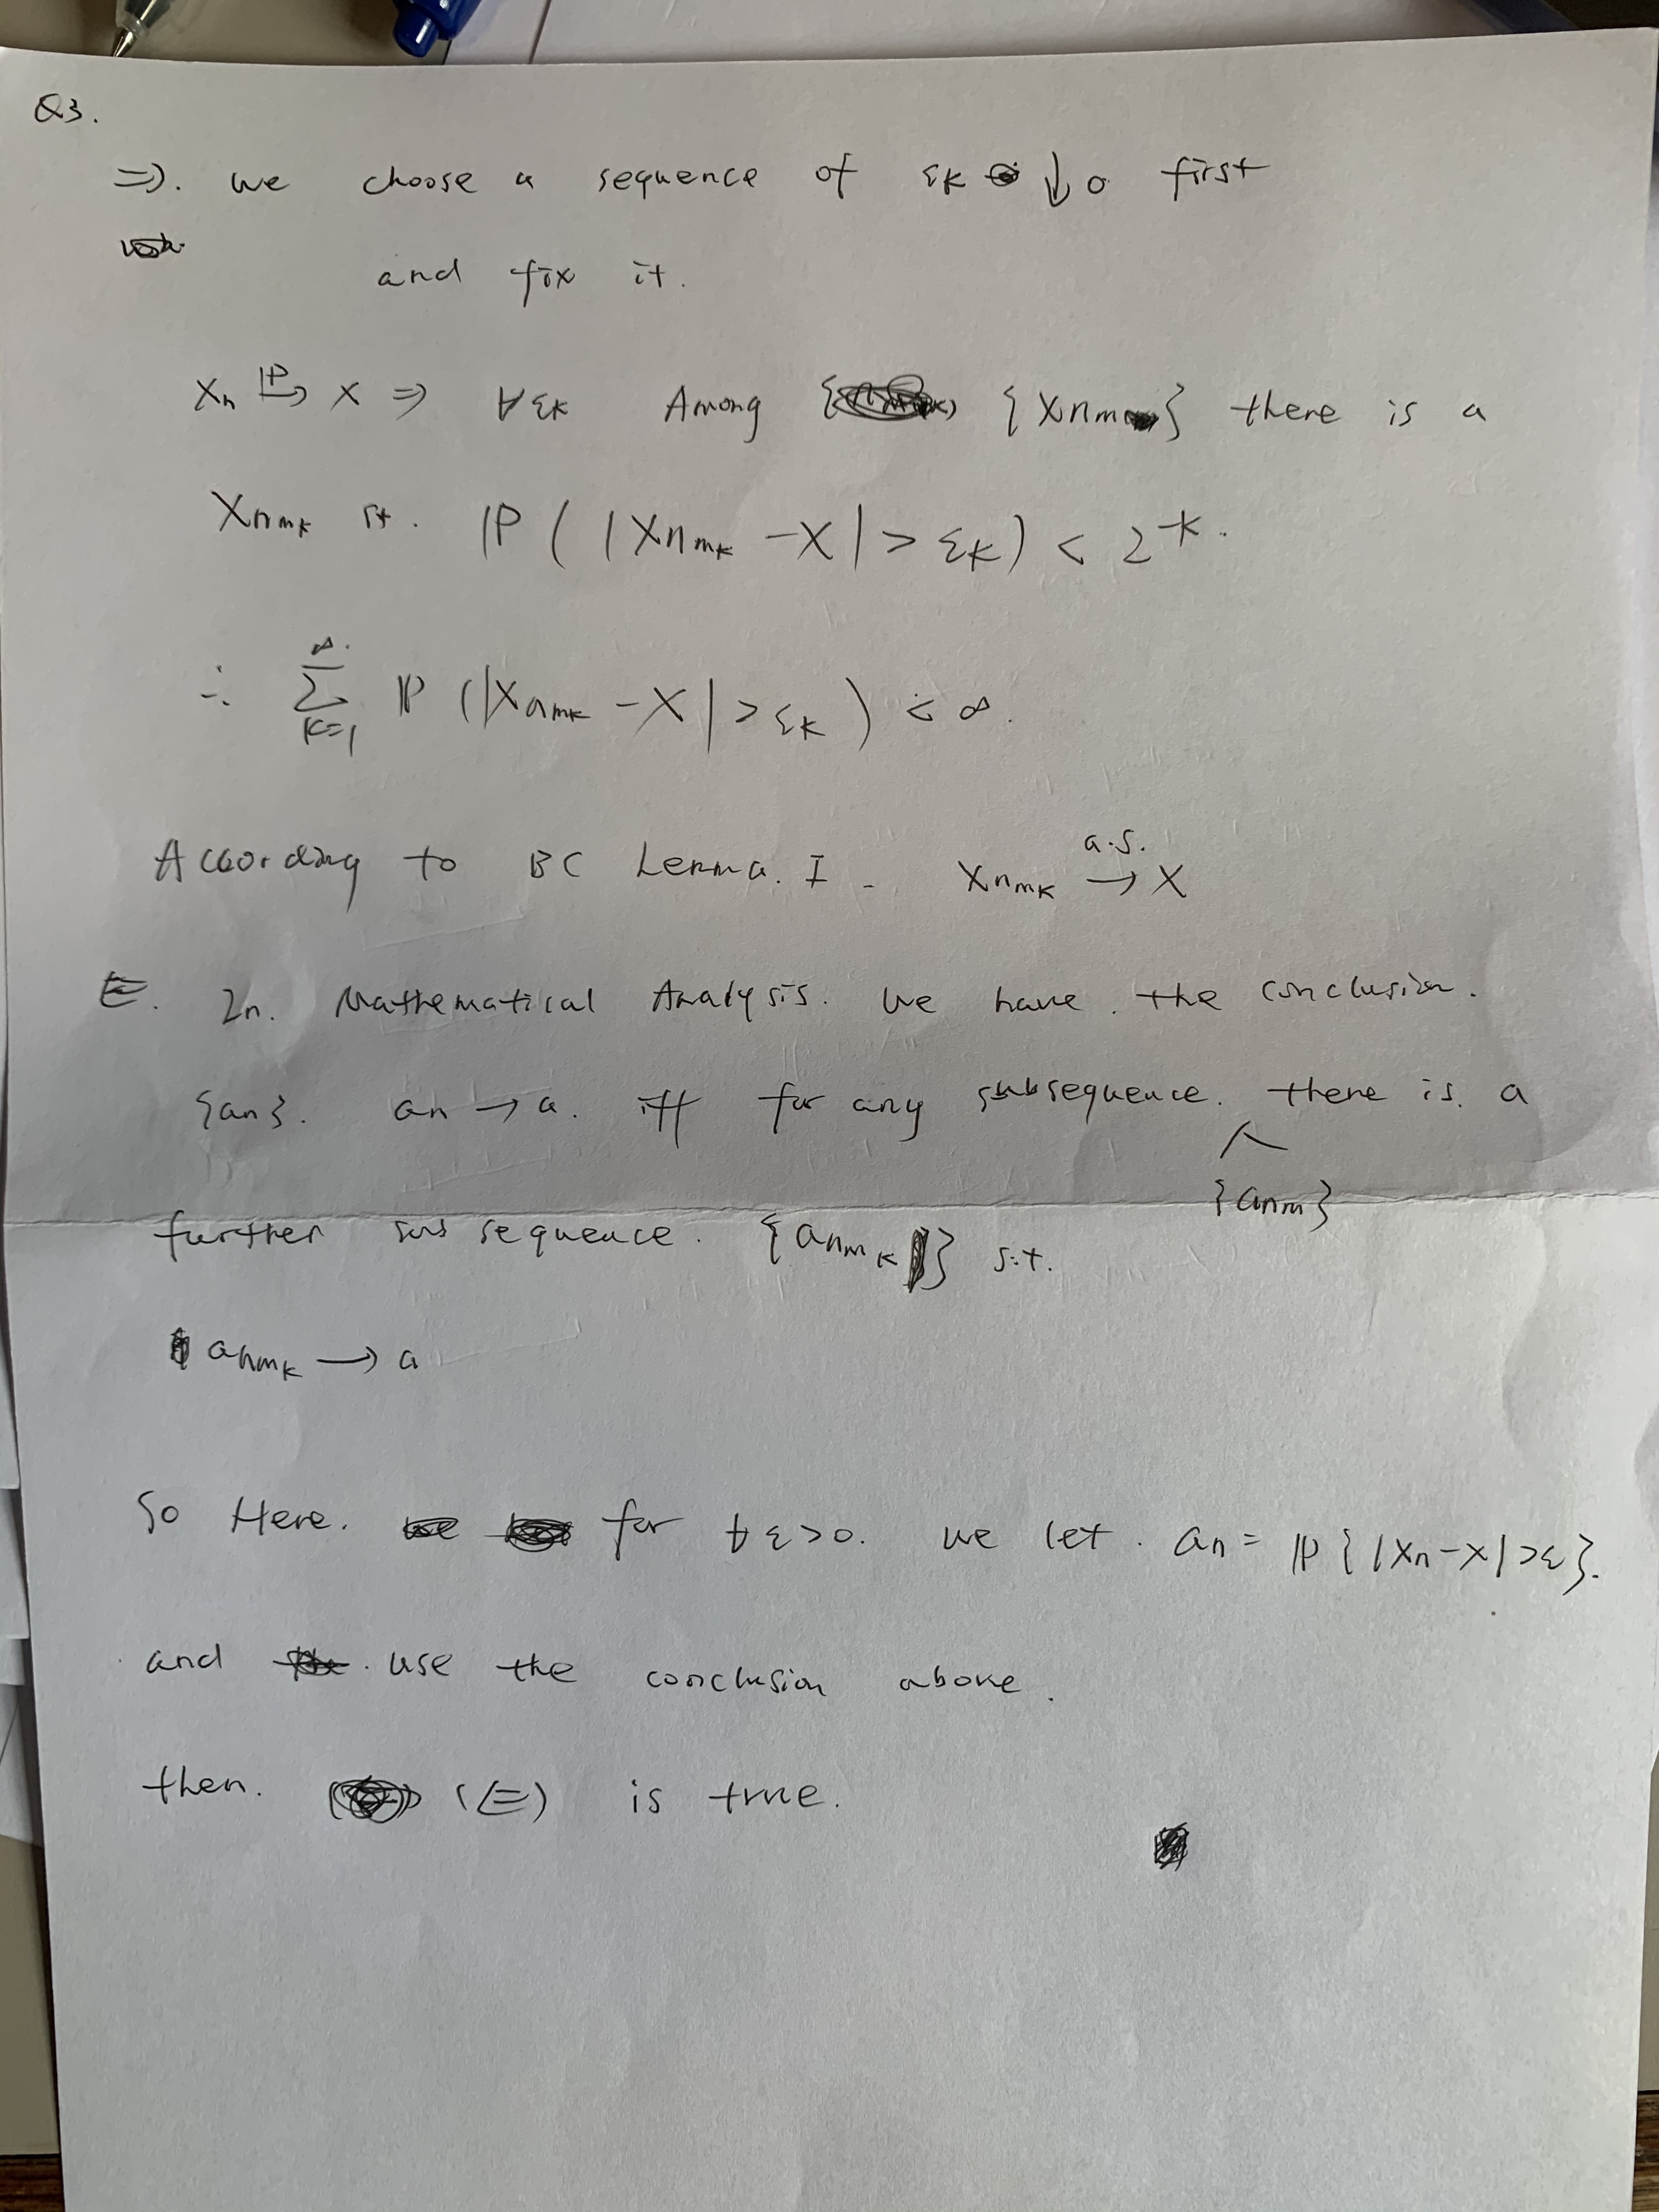 Q3.
⇒). we choose a sequence of εk ↓ 0 first
and fix it.
Xn →ᴾ X ⇒ ∀εk Among {Xnm} there is a
Xnmk st. ℙ(|Xnmk - X| > εk) < 2^-k.
∴ ∑_{k=1}^∞ ℙ(|Xnmk - X| > εk) < ∞.
According to BC Lemma. I - Xnmk →^{a.s.} X
⇐. In. Mathematical Analysis. we have. the conclusion.
{an}. an → a. iff for any subsequence. there is. a
{anm}
further subsequence. {anmk} s.t.
anmk → a
So Here. for ∀ε>0. we let. an = ℙ{|Xn-X|>ε}.
and use the conclusion above.
then. (⇐) is true.